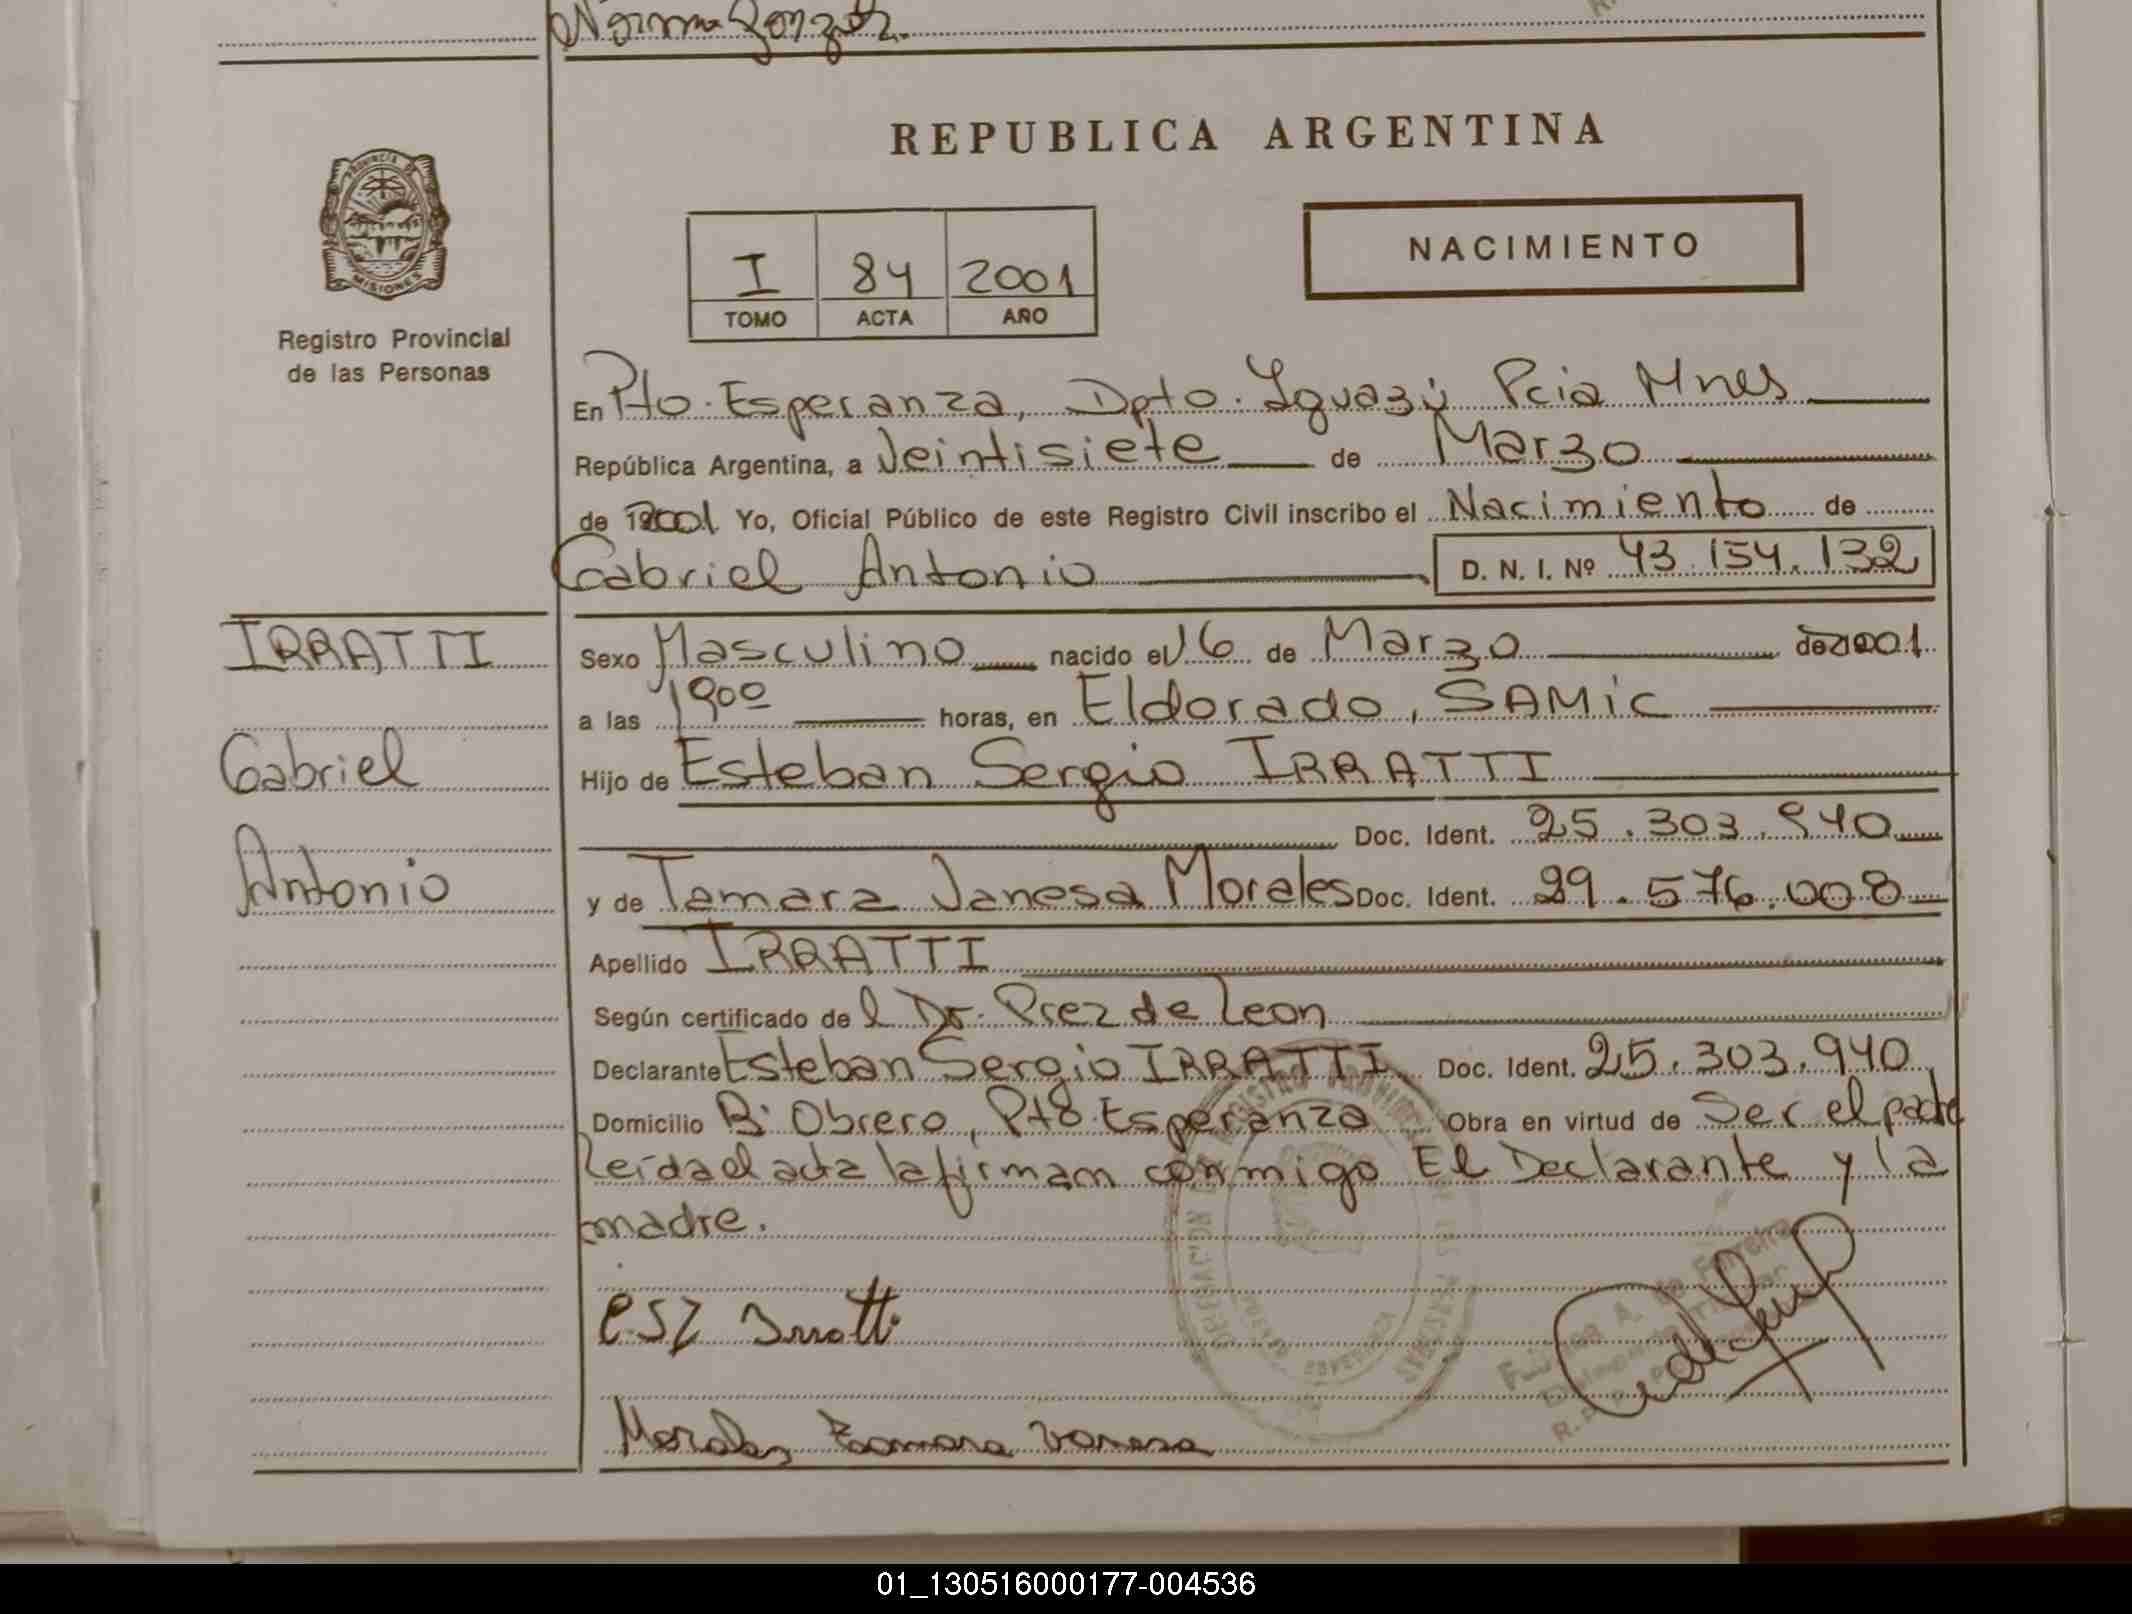 Norma González.
PROVINCIA DE
MISIONES
Registro Provincial
de las Personas
REPUBLICA ARGENTINA
NACIMIENTO
I 84 2001
TOMO ACTA AÑO
En Pto. Esperanza, Dpto. Iguazú Pcia Mnes
República Argentina, a Veintisiete de Marzo
de 2001 Yo, Oficial Público de este Registro Civil inscribo el Nacimiento de
Gabriel Antonio D. N. I. Nº 43.154.132
IRRATTI
Gabriel
Antonio
Sexo Masculino nacido el 16 de Marzo de 2001
a las 1900 horas, en Eldorado, SAMIC
Hijo de Esteban Sergio IRRATTI
Doc. Ident. 25.303.940
y de Tamara Vanesa Morales Doc. Ident. 29.576.008
Apellido IRRATTI
Según certificado del Dr. Prez de Leon
Declarante Esteban Sergio IRRATTI Doc. Ident. 25.303.940
Domicilio Bº Obrero, Ptº Esperanza Obra en virtud de Ser el padre
Leída el acta la firman conmigo El Declarante y la
madre.
Irratti
Morales Tamara Vanesa
01_130516000177-004536